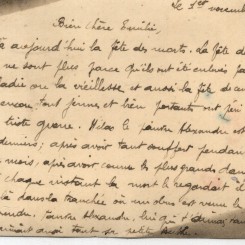 Le 1er novem
Bien chère Emilie,
aujourd'hui la fête des morts. La fête d
ne sont plus parce qu'ils ont été enlevés pa
ladie ou la vieillesse et aussi la fête de
encore tout jeunes et bien portants ont péri
triste guerre. Hélas le pauvre Alexandre est
derniers; après avoir tant souffert pendan
mois, après avoir connu les plus grands dan
chaque instant la mort le regardait
dans la tranchée où un obus est venu le
Pauvre Alexandre, lui qui
aussi tout sa